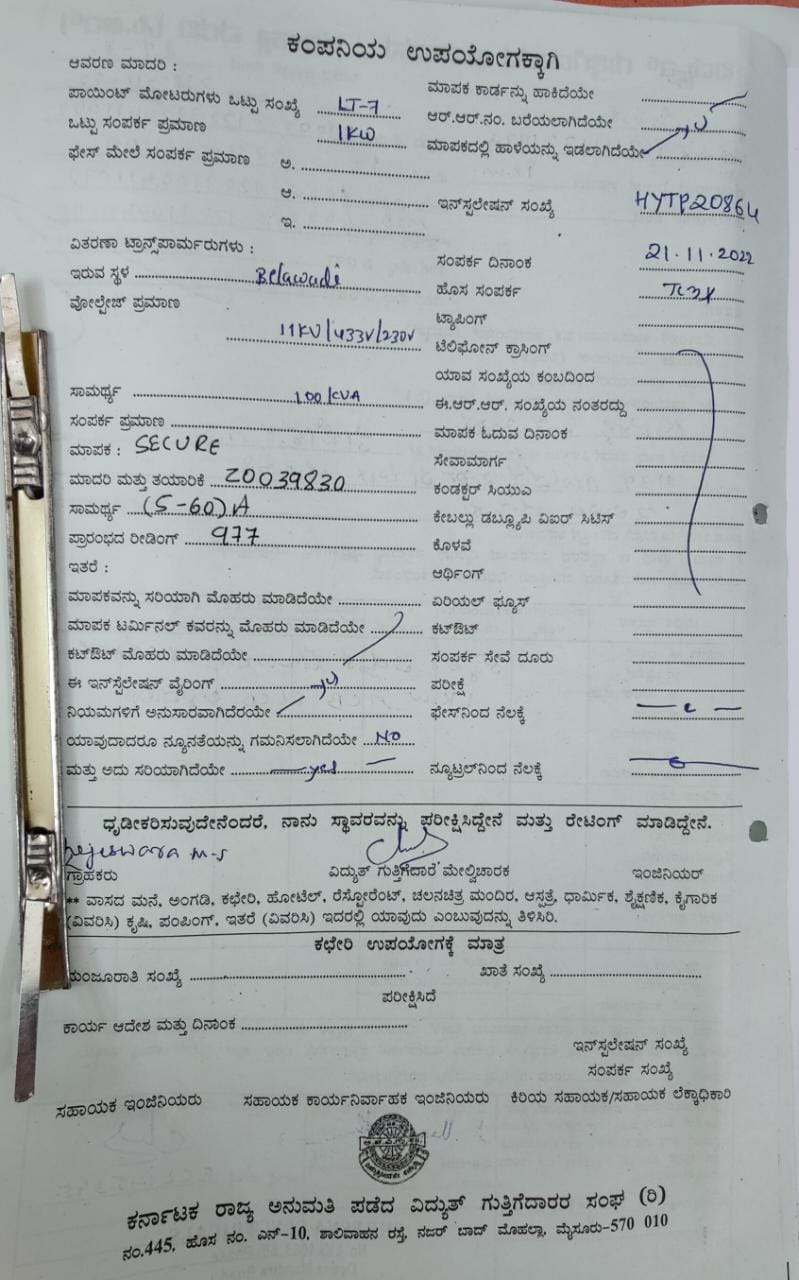 ಕಂಪನಿಯ ಉಪಯೋಗಕ್ಕಾಗಿ
ಆವರಣ ಮಾದರಿ :
ಪಾಯಿಂಟ್ ಮೋಟರುಗಳು ಒಟ್ಟು ಸಂಖ್ಯೆ LT-7
ಒಟ್ಟು ಸಂಪರ್ಕ ಪ್ರಮಾಣ 1KW
ಫೇಸ್ ಮೇಲೆ ಸಂಪರ್ಕ ಪ್ರಮಾಣ ಅ.
ಆ.
ಇ.
ವಿತರಣಾ ಟ್ರಾನ್ಸ್‌ಪಾರ್ಮರುಗಳು :
ಇರುವ ಸ್ಥಳ Belawadi
ವೋಲ್ಟೇಜ್ ಪ್ರಮಾಣ
11KV/433V/230V
ಸಾಮರ್ಥ್ಯ 100/KVA
ಸಂಪರ್ಕ ಪ್ರಮಾಣ
ಮಾಪಕ : SECURE
ಮಾದರಿ ಮತ್ತು ತಯಾರಿಕೆ 20039830
ಸಾಮರ್ಥ್ಯ (5-60)A
ಪ್ರಾರಂಭದ ರೀಡಿಂಗ್ 977
ಇತರೆ :
ಮಾಪಕವನ್ನು ಸರಿಯಾಗಿ ಮೊಹರು ಮಾಡಿದೆಯೇ
ಮಾಪಕ ಟರ್ಮಿನಲ್ ಕವರನ್ನು ಮೊಹರು ಮಾಡಿದೆಯೇ
ಕಟ್‌ಔಟ್ ಮೊಹರು ಮಾಡಿದೆಯೇ
ಈ ಇನ್‌ಸ್ಟೆಲೇಷನ್ ವೈರಿಂಗ್
ನಿಯಮಗಳಿಗೆ ಅನುಸಾರವಾಗಿದೆರಯೇ
ಯಾವುದಾದರೂ ನ್ಯೂನತೆಯನ್ನು ಗಮನಿಸಲಾಗಿದೆಯೇ NO
ಮತ್ತು ಅದು ಸರಿಯಾಗಿದೆಯೇ yes
ಮಾಪಕ ಕಾರ್ಡನ್ನು ಹಾಕಿದೆಯೇ
ಆರ್.ಆರ್.ನಂ. ಬರೆಯಲಾಗಿದೆಯೇ
ಮಾಪಕದಲ್ಲಿ ಹಾಳೆಯನ್ನು ಇಡಲಾಗಿದೆಯೇ
ಇನ್‌ಸ್ಟಲೇಷನ್ ಸಂಖ್ಯೆ HYTP20864
ಸಂಪರ್ಕ ದಿನಾಂಕ 21.11.2022
ಹೊಸ ಸಂಪರ್ಕ
ಟ್ಯಾಪಿಂಗ್
ಟೆಲಿಫೋನ್ ಕ್ರಾಸಿಂಗ್
ಯಾವ ಸಂಖ್ಯೆಯ ಕಂಬದಿಂದ
ಈ.ಆರ್.ಆರ್. ಸಂಖ್ಯೆಯ ನಂತರದ್ದು
ಮಾಪಕ ಓದುವ ದಿನಾಂಕ
ಸೇವಾಮಾರ್ಗ
ಕಂಡಕ್ಟರ್ ಸಿಯುಎ
ಕೇಬಲ್ಲು ಡಬ್ಲ್ಯೂಪಿ ವಿಐರ್ ಸಿಟಿಸ್
ಕೊಳವೆ
ಆರ್ಥಿಂಗ್
ಏರಿಯಲ್ ಫ್ಯೂಸ್
ಕಟ್‌ಔಟ್
ಸಂಪರ್ಕ ಸೇವೆ ದೂರು
ಪರೀಕ್ಷೆ
ಫೇಸ್‌ನಿಂದ ನೆಲಕ್ಕೆ
ನ್ಯೂಟ್ರಲ್‌ನಿಂದ ನೆಲಕ್ಕೆ
ಧೃಡೀಕರಿಸುವುದೇನೆಂದರೆ, ನಾನು ಸ್ಥಾವರವನ್ನು ಪರೀಕ್ಷಿಸಿದ್ದೇನೆ ಮತ್ತು ರೇಟಿಂಗ್ ಮಾಡಿದ್ದೇನೆ.
ಗ್ರಾಹಕರು ವಿದ್ಯುತ್ ಗುತ್ತಿಗೆದಾರ ಮೇಲ್ವಿಚಾರಕ ಇಂಜಿನಿಯರ್
** ವಾಸದ ಮನೆ, ಅಂಗಡಿ, ಕಛೇರಿ, ಹೋಟೆಲ್, ರೆಸ್ಟೋರೆಂಟ್, ಚಲನಚಿತ್ರ ಮಂದಿರ, ಆಸ್ಪತ್ರೆ, ಧಾರ್ಮಿಕ, ಶೈಕ್ಷಣಿಕ, ಕೈಗಾರಿಕ
(ವಿವರಿಸಿ) ಕೃಷಿ, ಪಂಪಿಂಗ್, ಇತರೆ (ವಿವರಿಸಿ) ಇದರಲ್ಲಿ ಯಾವುದು ಎಂಬುವುದನ್ನು ತಿಳಿಸಿರಿ.
ಕಛೇರಿ ಉಪಯೋಗಕ್ಕೆ ಮಾತ್ರ
ಮಂಜೂರಾತಿ ಸಂಖ್ಯೆ ಖಾತೆ ಸಂಖ್ಯೆ
ಪರೀಕ್ಷಿಸಿದೆ
ಕಾರ್ಯ ಆದೇಶ ಮತ್ತು ದಿನಾಂಕ
ಇನ್‌ಸ್ಟಲೇಷನ್ ಸಂಖ್ಯೆ
ಸಂಪರ್ಕ ಸಂಖ್ಯೆ
ಸಹಾಯಕ ಇಂಜಿನಿಯರು ಸಹಾಯಕ ಕಾರ್ಯನಿರ್ವಾಹಕ ಇಂಜಿನಿಯರು ಕಿರಿಯ ಸಹಾಯಕ/ಸಹಾಯಕ ಲೆಕ್ಕಾಧಿಕಾರಿ
ಕರ್ನಾಟಕ ರಾಜ್ಯ ಅನುಮತಿ ಪಡೆದ ವಿದ್ಯುತ್ ಗುತ್ತಿಗೆದಾರರ ಸಂಘ (ರಿ)
ನಂ.445, ಹೊಸ ನಂ. ಎನ್-10, ಶಾಲಿವಾಹನ ರಸ್ತೆ, ನಜರ್ ಬಾದ್ ಮೊಹಲ್ಲಾ, ಮೈಸೂರು-570 010